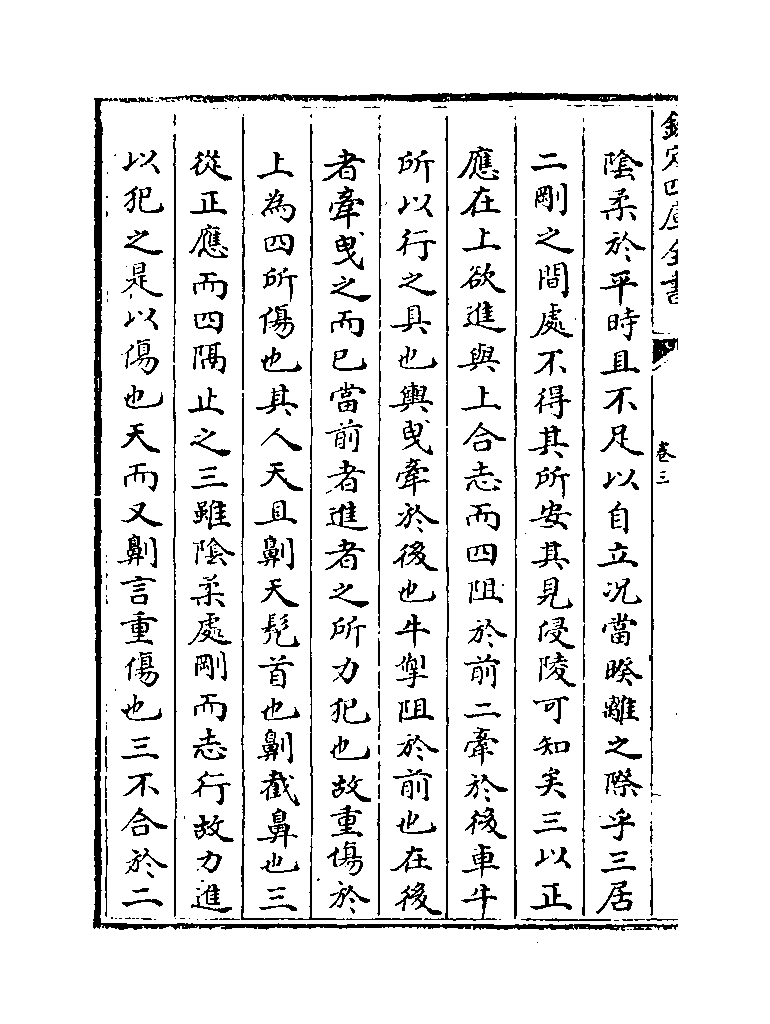 欽定四庫全書
卷三
陰柔於平時且不足以自立况當暌離之際乎三居
二剛之間處不得其所安其見侵陵可知矣三以正
應在上欲進與上合志而四阻於前二牽於後車牛
所以行之具也輿曵牽於後也牛掣阻於前也在後
者牽曵之而已當前者進者之所力犯也故重傷於
上為四所傷也其人天且劓天髠首也劓截鼻也三
從正應而四隔止之三雖陰柔處剛而志行故力進
以犯之是以傷也天而又劓言重傷也三不合於二